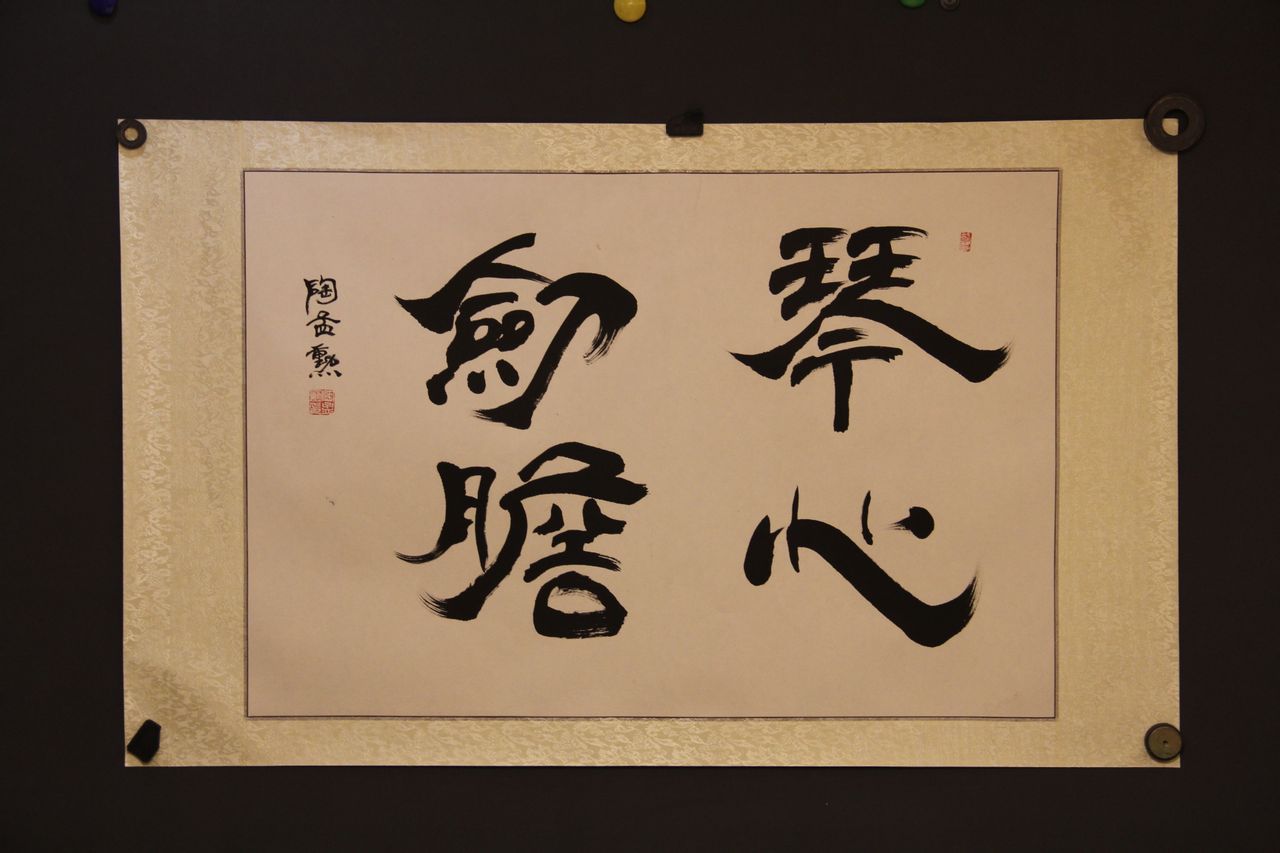 琴心
劍膽
陶孟勲